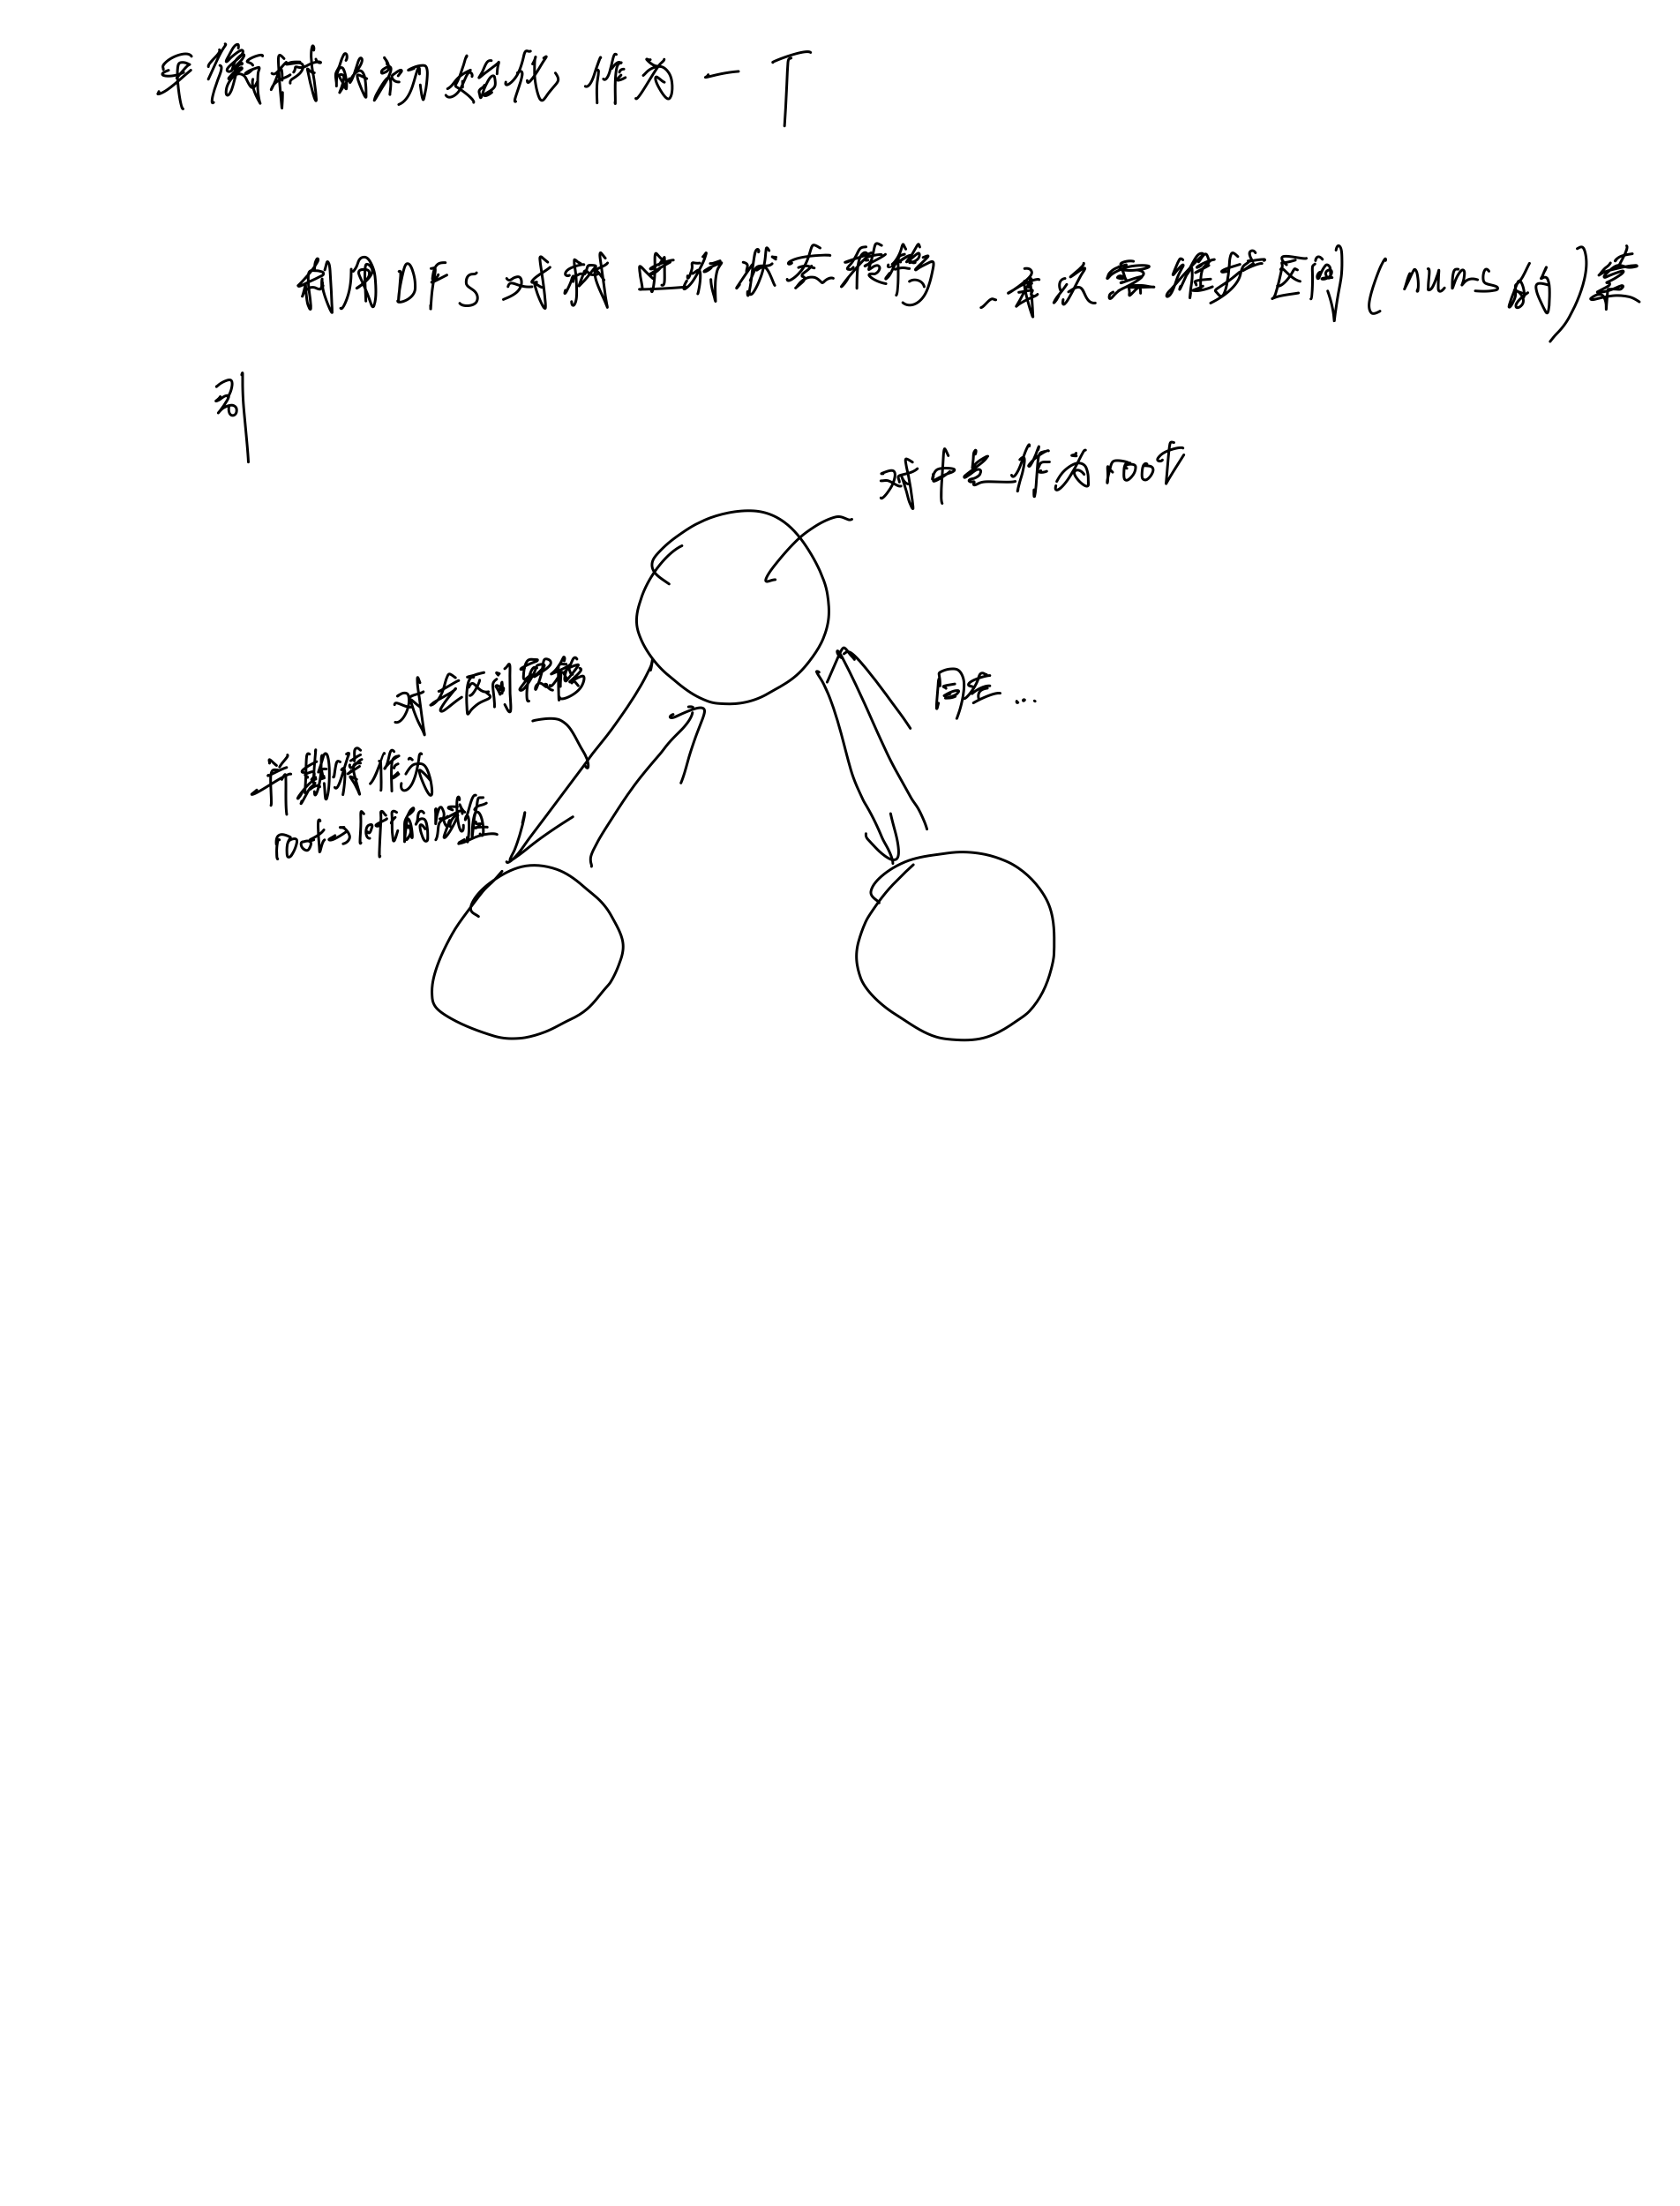 平衡树的初始化作为一下
利用DFS对树进行状态转移、每次要维护区间(nums的)索
引
对中点作为root
对左区间转移
并期待作为
root->left的赋值
同左...